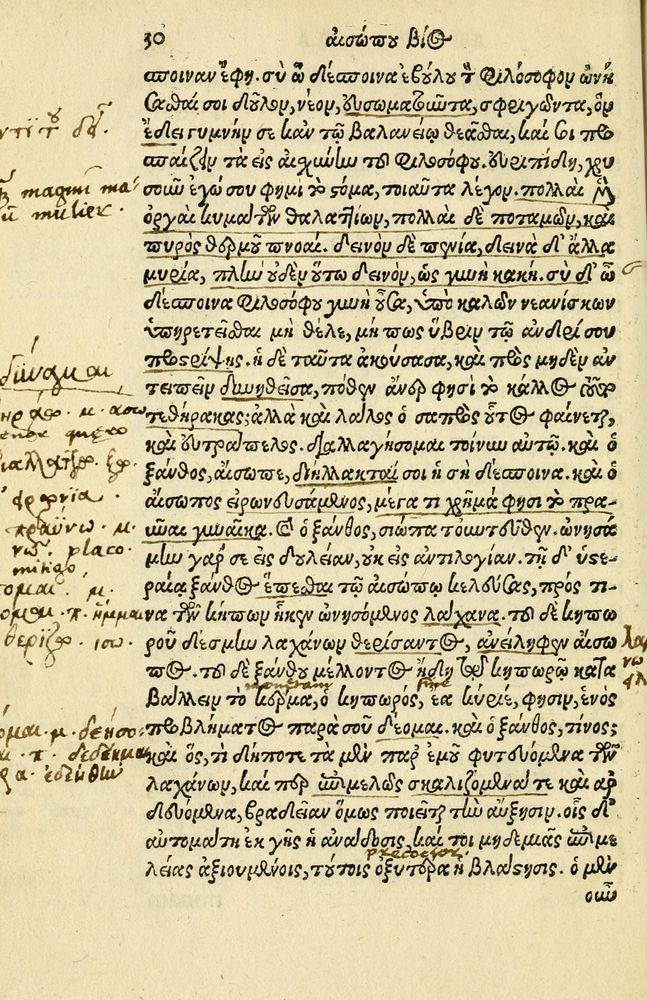 30 αἰσώπου βίος
σποιναν ἔφη. σὺ ὦ δέσποινα ἐβούλου τὸν φιλόσοφον ὠνή
σασθαί σοι δοῦλον, νέον, εὐσωματοῦντα, σφριγῶντα, ὃν
ἔδει γυμνήν σε κἀν τῷ βαλανείῳ θεᾶσθαι, καί σοι προ
σπαίζειν τὰ εἰς αἰσχύνην τοῦ φιλοσόφου. εὐριπίδη, χρυ
σοῦν ἐγώ σου φημὶ τὸ στόμα, τοιαῦτα λέγον. πολλαὶ μὲν
ὀργαὶ κυμάτων θαλαττίων, πολλαὶ δὲ ποταμῶν, καὶ
πυρὸς θερμοῦ πνοαί. δεινὸν δὲ πενία, δεινὰ δ' ἄλλα
μυρία, πλὴν οὐδὲν οὕτω δεινὸν, ὡς γυνὴ κακή. σὺ δ' ὦ
δέσποινα φιλοσόφου γυνὴ οὖσα, ὑπὸ καλῶν νεανίσκων
ὑπηρετεῖσθαι μὴ θέλε, μή πως ὕβριν τῷ ἀνδρί σου
προστρίψῃς. ἡ δὲ ταῦτα ἀκούσασα, καὶ πρὸς μηδὲν ἀν
τειπεῖν δυνηθεῖσα, πόθεν ἄνερ φησὶ τὸ κάλλος τοῦτο
τεθήρακας; ἀλλὰ καὶ λάλος ὁ σαπρὸς οὗτος φαίνεται,
καὶ εὐτράπελος. διαλλαγήσομαι τοίνυν αὐτῷ. καὶ ὁ
ξάνθος, αἴσωπε, διήλλακταί σοι ἡ σὴ δέσποινα. καὶ ὁ
αἴσωπος εἰρωνευσάμενος, μέγα τι χρῆμά φησι τὸ πρα-
ῧναι γυναῖκα. καὶ ὁ ξάνθος, σιώπα τοὐντεῦθεν. ὠνησά
μην γάρ σε εἰς δουλείαν, οὐκ εἰς ἀντιλογίαν. τῇ δ' ὑστε-
ραίᾳ ξάνθος ἕπεσθαι τῷ αἰσώπῳ κελεύσας, πρός τι-
να τῶν κήπων ἧκεν ὠνησόμενος λάχανα. τοῦ δὲ κηπω
ροῦ δέσμην λαχάνων θερίσαντος, ἀνείληφεν αἴσω
πος. τοῦ δὲ ξάνθου μέλλοντος ἤδη τῷ κηπωρῷ κατα
βάλλειν τὸ κέρμα, ὁ κηπωρός, ἔα κύριέ, φησιν, ἑνὸς
προβλήματος παρὰ σοῦ δέομαι. καὶ ὁ ξάνθος, τίνος;
καὶ ὅς, τί δήποτε τὰ μὲν παρ' ἐμοῦ φυτευόμενα τῶν
λαχάνων, καίπερ ἐπιμελῶς σκαλιζόμενά τε καὶ ἀρ
δευόμενα, βραδεῖαν ὅμως ποιεῖται τὴν αὔξησιν. οἷς δ'
αὐτομάτη ἐκ γῆς ἡ ἀνάδοσις, καί τοι μηδεμιᾶς ἐπιμε
λείας ἀξιουμένοις, τούτοις ὀξυτέρα ἡ βλάστησις. ὁ μὲν
οὖν
magnū ma-
mulier.
δύναμαι
διαλλάττω.
εἰρωνία.
πραΰνω. μ.
νῶ. placo.
mitigo
θερίζω. ισω.
monetam
sine
precocior